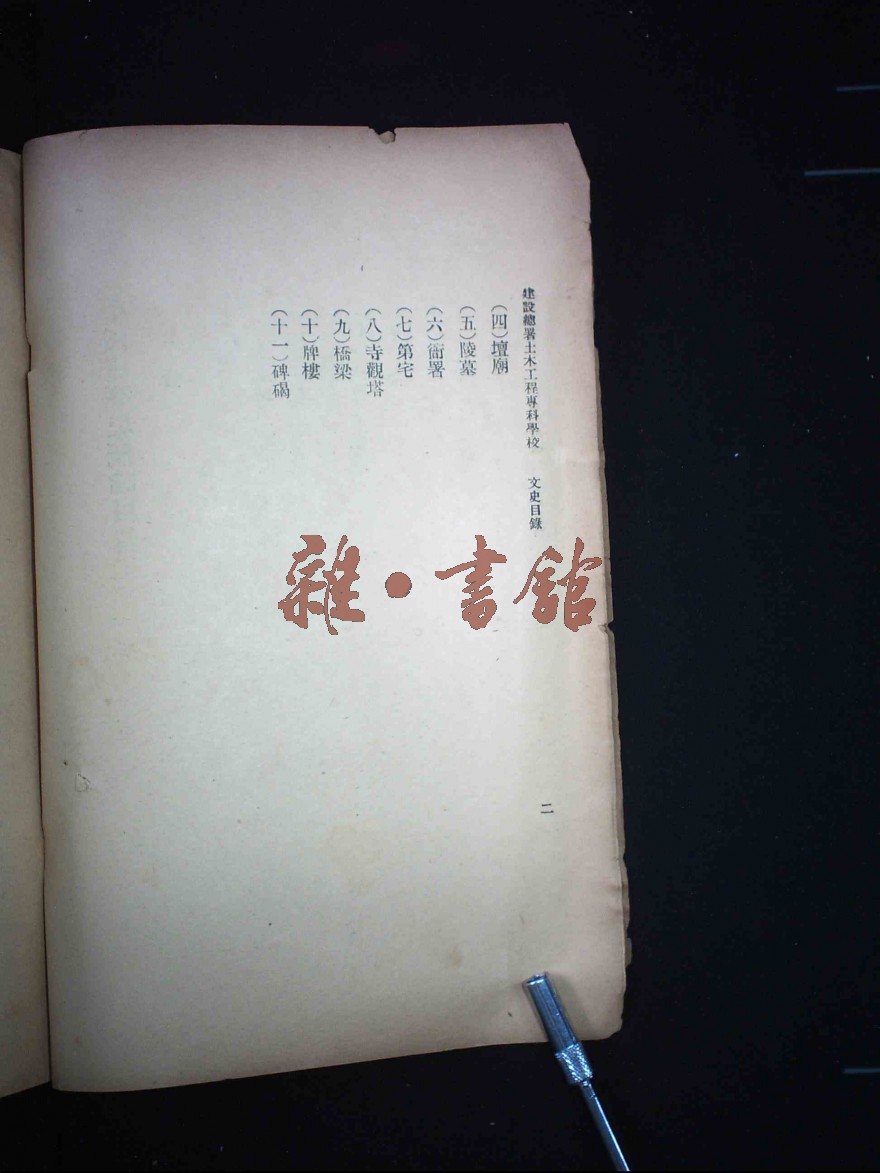 建設總署土木工程專科學校　文史目錄
二
(四)壇廟
(五)陵墓
(六)衙署
(七)第宅
(八)寺觀塔
(九)橋梁
(十)牌樓
(十一)碑碣
雜·書館